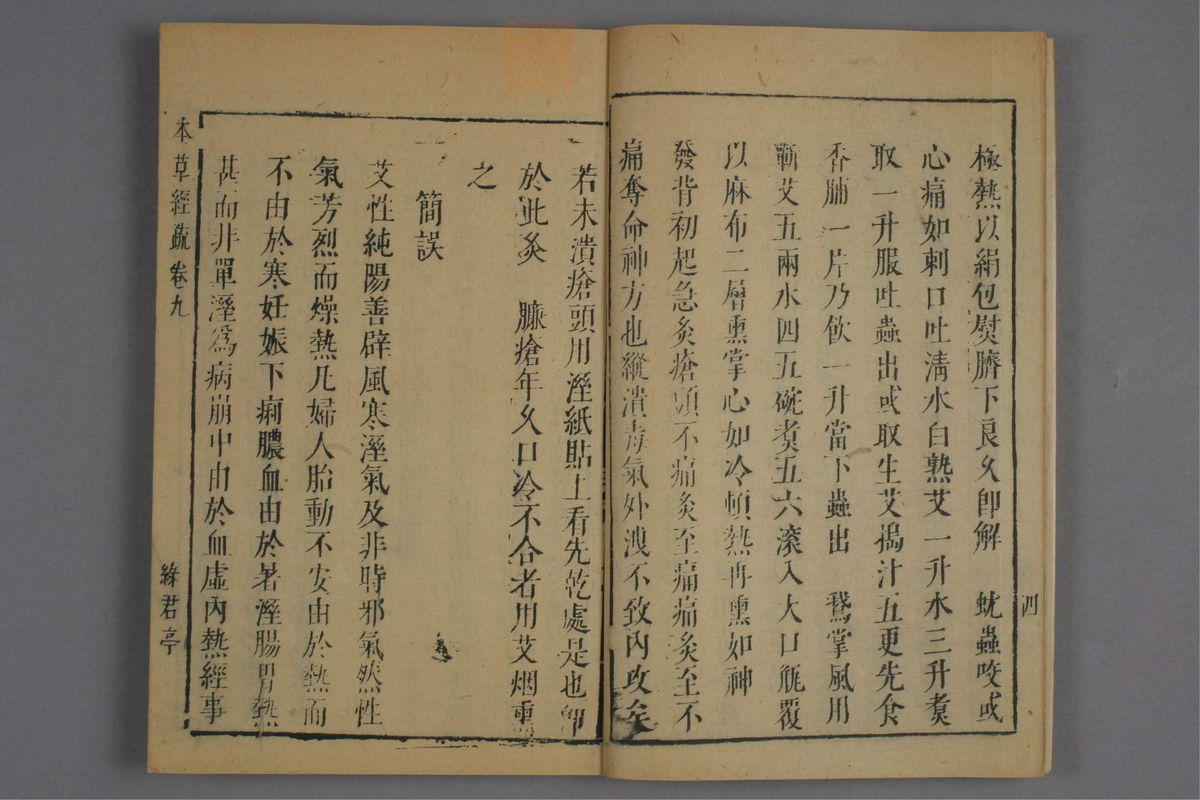 極熱以絹包熨臍下良久卽解　蚘蟲咬或
心痛如刺口吐淸水白熟艾一升水三升煑
取一升服吐蟲出或取生艾搗汁五更先食
香脯一片乃飮一升當下蟲出　鵞掌風用
蘄艾五兩水四五碗煑五六滾入大口甁覆
以麻布二層熏掌心如冷頓熱再熏如神
發背初起急灸瘡頭不痛灸至痛痛灸至不
痛奪命神方也縱潰毒氣外洩不致內攻矣
四
若未潰瘡頭用溼紙貼上看先乾處是也卽
於此灸　臁瘡年久口冷不合者用艾烟熏
之
簡誤
艾性純陽善辟風寒溼氣及非時邪氣然性
氣芳烈而燥熱凡婦人胎動不安由於熱而
不由於寒妊娠下痢膿血由於暑溼腸胃熱
甚而非單溼爲病崩中由於血虛內熱經事
本草經疏 卷九
綠君亭